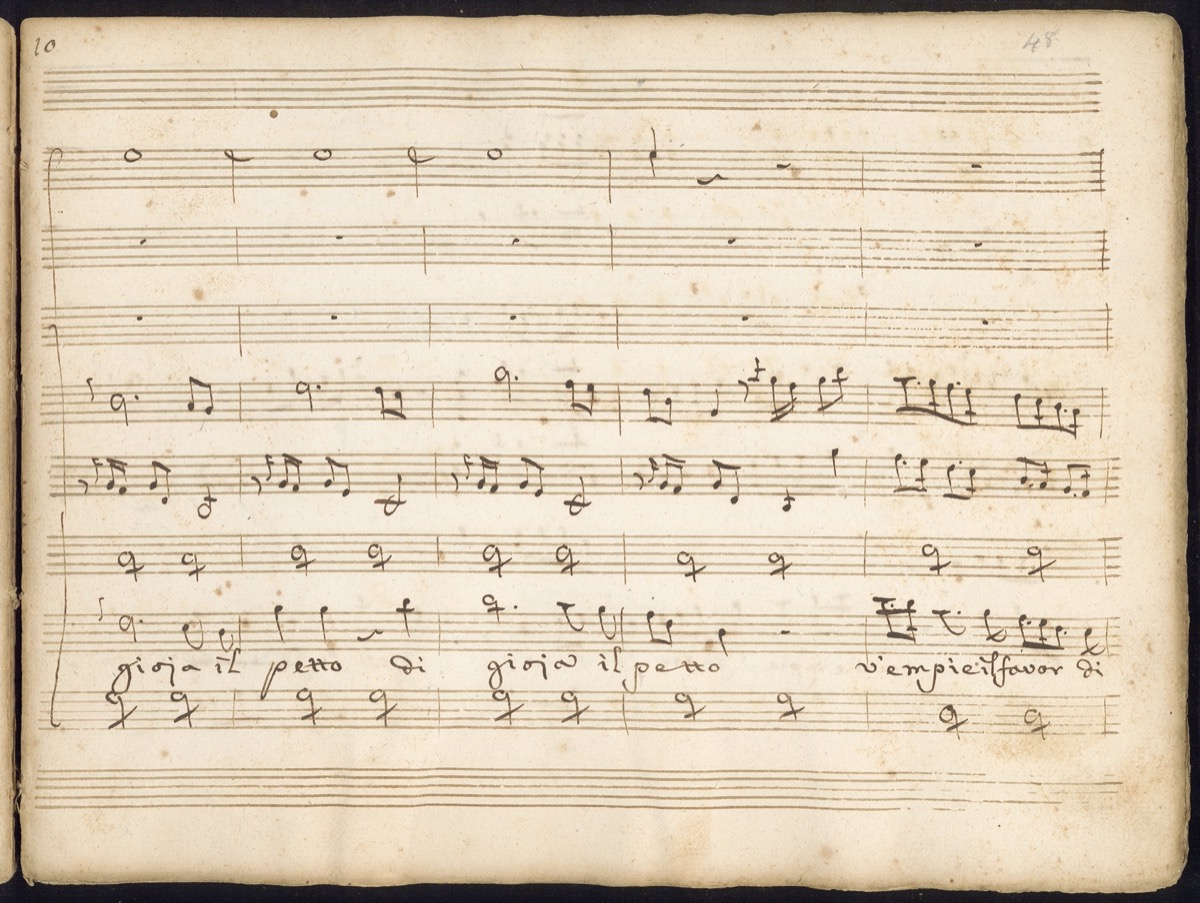 10
48
gioja il petto di gioja il petto v'empie il favor di